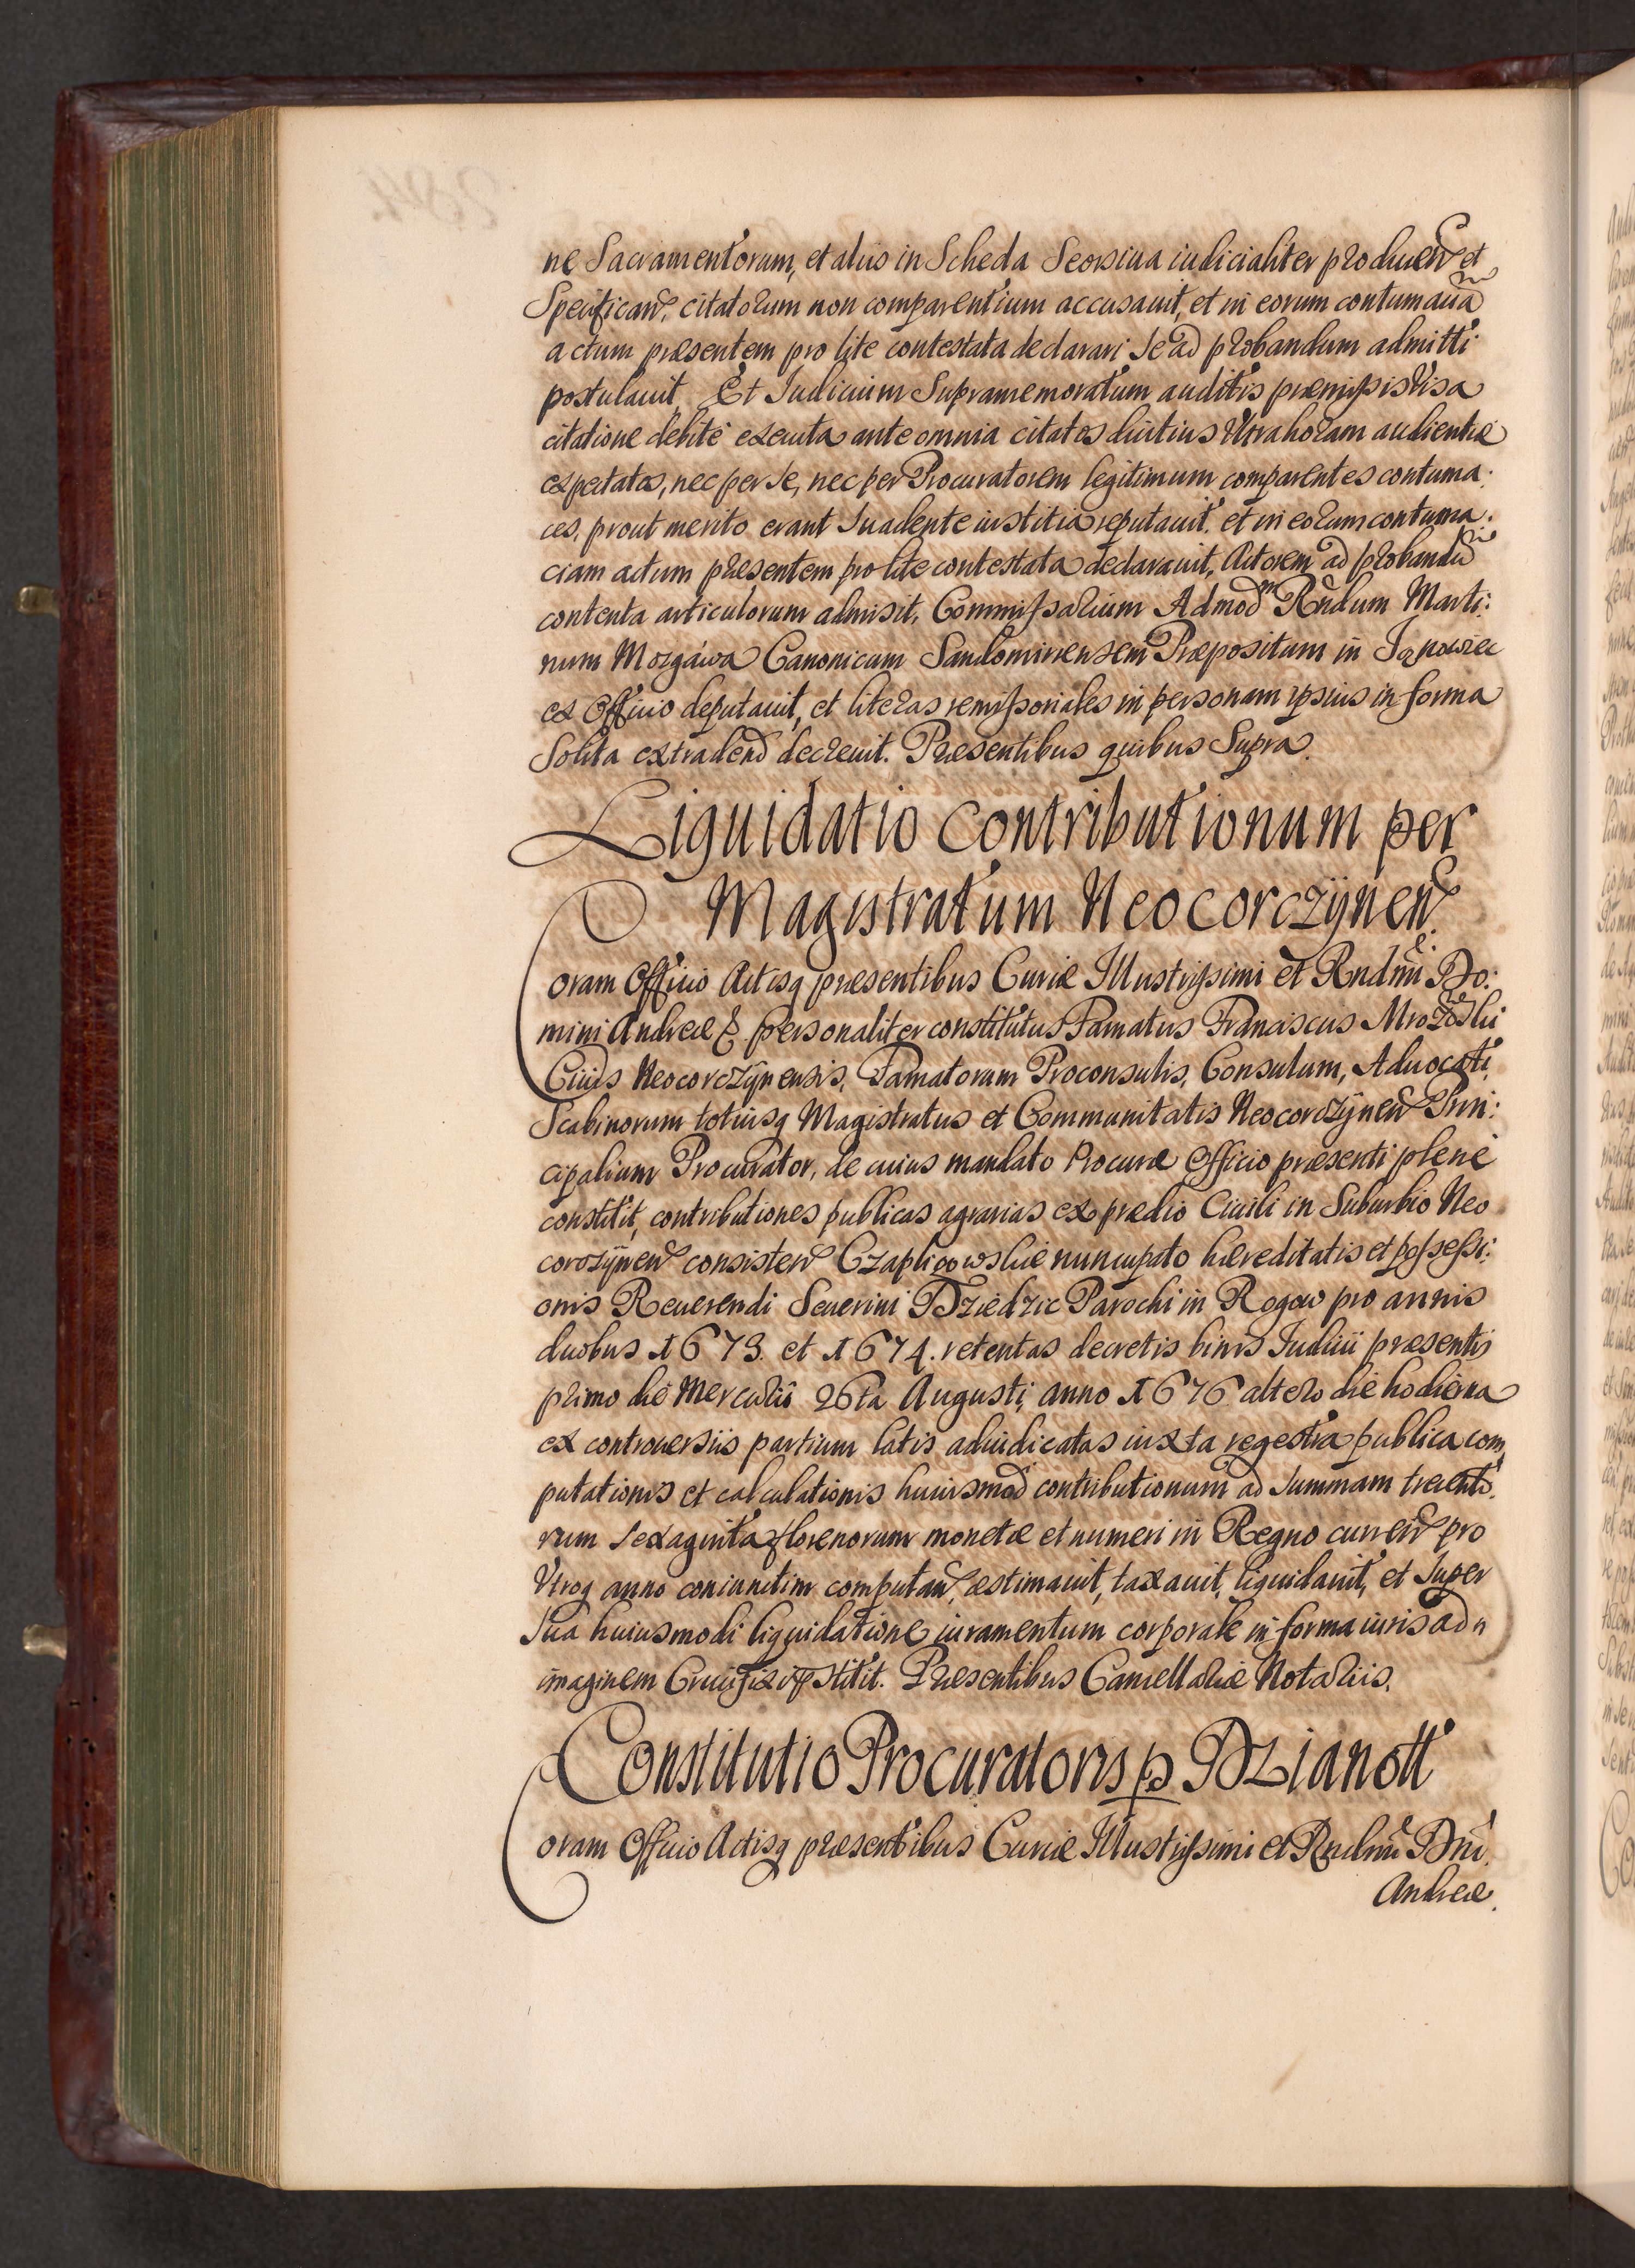 ne Sacramentorum, et aliis in Scheda Seorsiua iudicialiter producen et
Specifican, citatorum non comparentium accusauit, et in eorum contumatiam
actum præsentem pro lite contestata declarari se ad probandum admitti
postulauit Et Iudicium Supramemoratum auditis præmissis Visa
citatione debite executa ante omnia citatos diutius Vltra horam audientiæ
expectatos, nec per se, nec per Procuratorem legitimum comparentes contuma:
ces, prout merito erant suadente iustitia reputauit, et in eorum contuma:
ciam actum præsentem pro lite contestata declarauit, Actorem ad probandum
contenta articulorum admisit, Commissarium Admod Rndum Marti:
num Mozgáwa Canonicum Sandomiriensem Præpositum in
ex Officio deputauit, et literas remissoriales in personam ipsius in forma
Solita extradend decreuit. Præsentibus quibus Supra.
Liquidatio Contributionum per
Magistratum Neocorczÿnen.
Coram Officio Actisq præsentibus Curiæ Illustrissimi et Rndmi Do:
mini Andreæ &. personaliter constitutus Famatus Franciscus
Ciuis Neocorczÿnensis, Famatorum Proconsulis, Consulum, Aduocati,
Scabinorum totiusq Magistratus et Communitatis Neocorczÿnen Prin:
cipalium Procurator, de cuius mandato Procuræ Officio præsenti plene
constitit, contributiones publicas agrarias ex prædio Ciuili in Suburbio Neo
corczÿnen consisten nuncupato hæreditatis et possessi:
onis Reuerendi Seuerini Dziedzic Parochi in Rogow pro annis
duobus 1673. et 1674. retentas decretis binis Iudicii præsentis
primo die Mercurii 26ta Augusti, anno 1676 altero die hodierna
ex controuersiis partium latis adiudicatas iuxta regestra publica com
putationis et calculationis huiusmod contributionum ad summam trecento
rum sexaginta florenorum monetæ et numeri in Regno curren pro
Vtroq anno coniunctim computan, æstimauit, taxauit, liquidauit, et super
sua huiusmodi liquidatione iuramentum corporale in forma iuris ad
imaginem Crucifixi Præsentibus Cancellariæ Notariis.
Constitutio Procuratoris p Dzianott
Coram Officio Actisq præsentibus Curiæ Illustrissimi et Rndmi Dni
Andreæ.